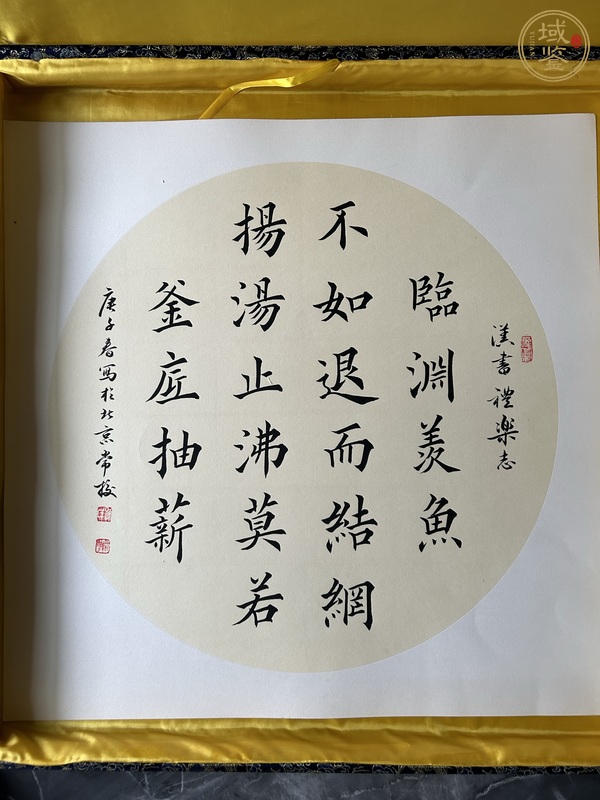 漢書禮樂志
臨淵羨魚
不如退而結網
揚湯止沸莫若
釜底抽薪
庚子春寫於北京常校
域鉴